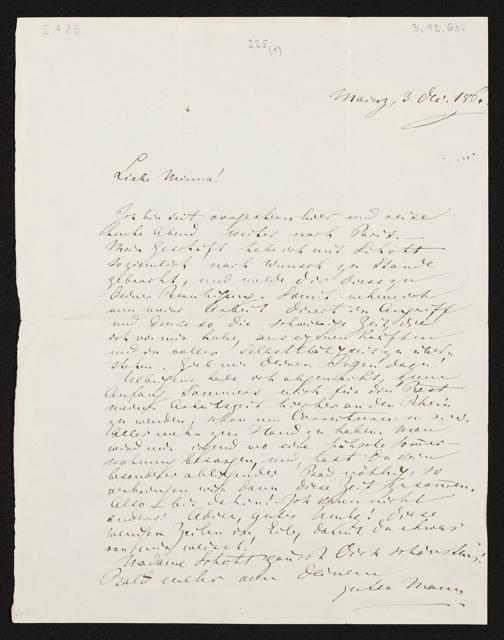 I A 8 b
3.12.61.
225 (1)
Mainz, 3 Dec. 186
Liebe Minna!
Ich bin seit vorgestern hier und reise
heute Abend weiter nach Paris. —
Mein Geschäft habe ich mit Schott
so ziemlich nach Wunsch zu Stande
gebracht, und melde dir dies zu
Deiner Beruhigung. Somit nehme ich
nun meine Arbeit direct in Angriff
und denke so die schwierige Zeit, die
ich vor mir habe, aus eigenen Kräften
und in voller Selbstthätigkeit zu über-
stehen. Gieb mir Deinen Segen dazu!
Uebrigens habe ich abgemacht, zum
Anfang Sommers mich für den Rest
meiner Arbeitszeit hierher an den Rhein
zu wenden, schon um Correcturen u. s. w.
alles mehr zur Hand zu haben. Man
wird mir irgend wo eine hübsche Sommer-
wohnung besorgen, und hast Du kein
besonders abliegendes Bad nöthig, so
verbringen wir dann diese Zeit zusammen.
Also — bis dahin! — Ich kann nicht
anders! Adieu, gute Minna! Diese
wenigen Zeilen in Eile, damit Du etwas
von mir weisst!
Madame Schott grüsst Dich schönstens!
Bald mehr von Deinem
guten Mann